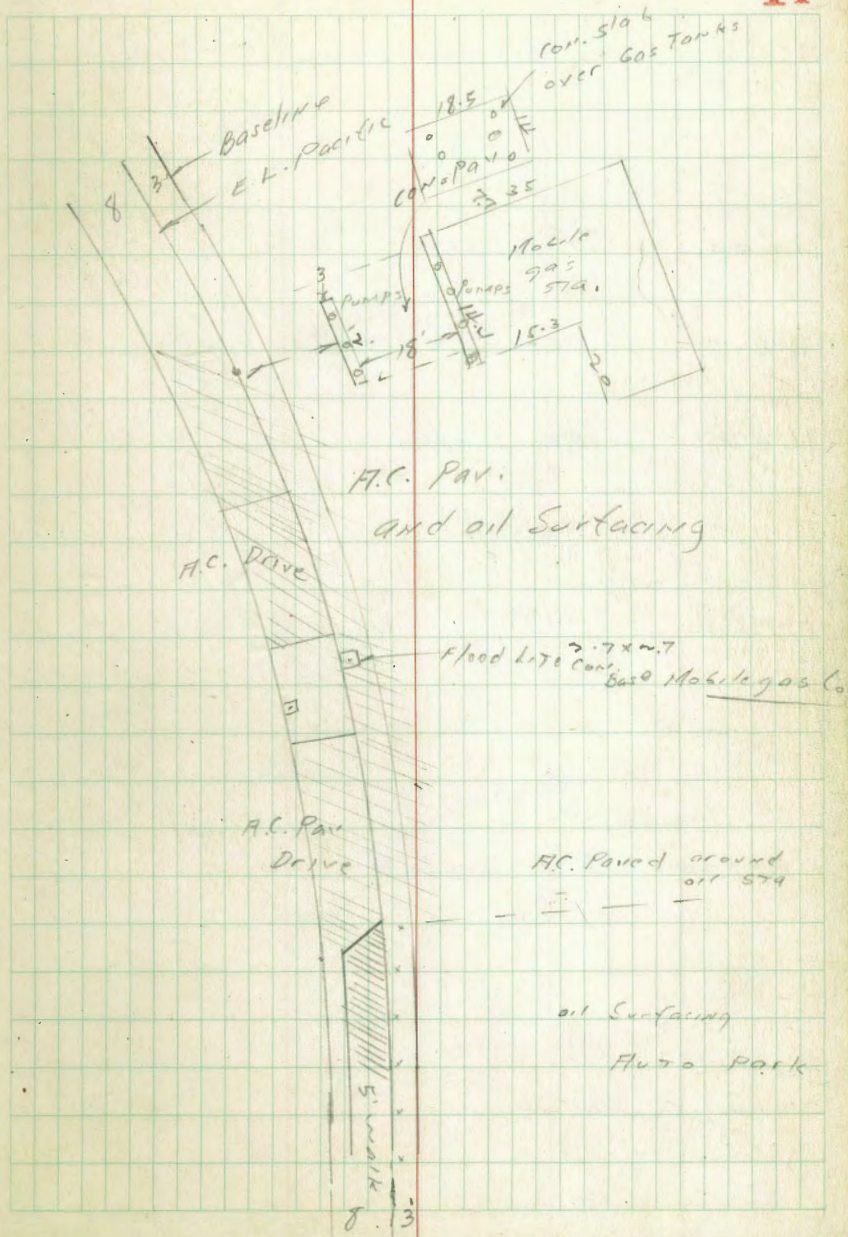 con. slab
over Gas Tanks
18.5
14
Baseline
E. L. Pacific
3
8
con. Pav
35
Mobile
gas
sta.
3
Pumps
Pumps
18
15.3
20
A.C. Pav.
and oil Surfacing
A.C. Drive
Flood Lite
con.
Base Mobile gas Co
A.C. Pav
Drive
A.C. Paved around
oil sta
oil Surfacing
Auto Park
5' walk
8 3